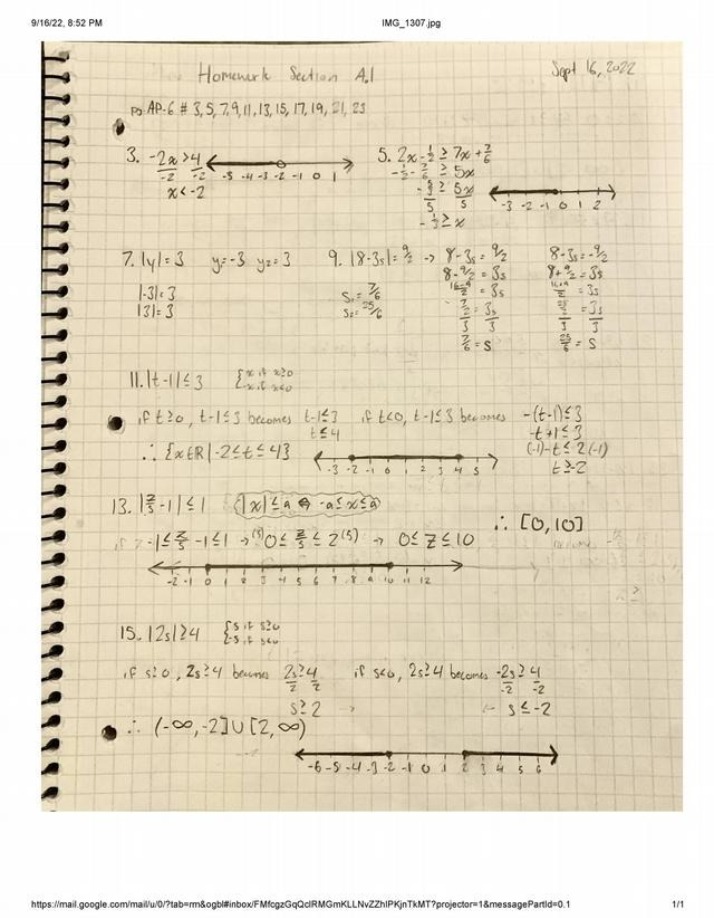 9/16/22, 8:52 PM IMG_1307.jpg
Homework Section A.1 Sept 16, 2022
pg AP-6 # 3, 5, 7, 9, 11, 13, 15, 17, 19, 21, 23
3. -2x > 4
-2 -2
x < -2
-5 -4 -3 -2 -1 0 1
5. 2x - 1/2 ≥ 7x + 7/6
-1/2 - 7/6 ≥ 5x
5 5
- 1/3 ≥ x
-3 -2 -1 0 1 2
7. |y| = 3 y₁=-3 y₂=3
|-3| = 3
|3| = 3
9. |8-3s| = 9/2 → 8-3s = 9/2
8-9/2 = 3s
= 3s
7/2 = 3s
3 3
7/6 = s
8-3s = -9/2
8+9/2 = 3s
= 3s
25/2 = 3s
3 3
25/6 = s
S₁= 7/6
S₂= 25/6
11. |t-1| ≤ 3 {x if x≥0
-x if x<0
if t≥0, t-1≤3 becomes t-1≤3
t≤4
if t<0, t-1≤3 becomes -(t-1)≤3
-t+1≤3
(-1)-t ≤ 2(-1)
t≥-2
∴ {x∈R | -2≤t≤4}
-3 -2 -1 0 1 2 3 4 5
13. |z/5 - 1| ≤ 1 (|x| ≤ a ⇔ -a ≤ x ≤ a)
∴ [0,10]
-1 ≤ z/5 - 1 ≤ 1 → (5)0 ≤ z/5 ≤ 2(5) → 0 ≤ z ≤ 10
-2 -1 0 1 2 3 4 5 6 7 8 9 10 11 12
15. |2s| ≥ 4 {s if s≥0
-s if s<0
if s≥0, 2s≥4 becomes 2s≥4
2 2
s≥2
if s<0, 2s≥4 becomes -2s≥4
-2 -2
s≤-2
∴ (-∞,-2]∪[2,∞)
-6 -5 -4 -3 -2 -1 0 1 2 3 4 5 6
https://mail.google.com/mail/u/0/?tab=rm&ogbl#inbox/FMfcgzGqQclRMGmKLLNvZZhlPKjnTkMT?projector=1&messagePartId=0.1 1/1